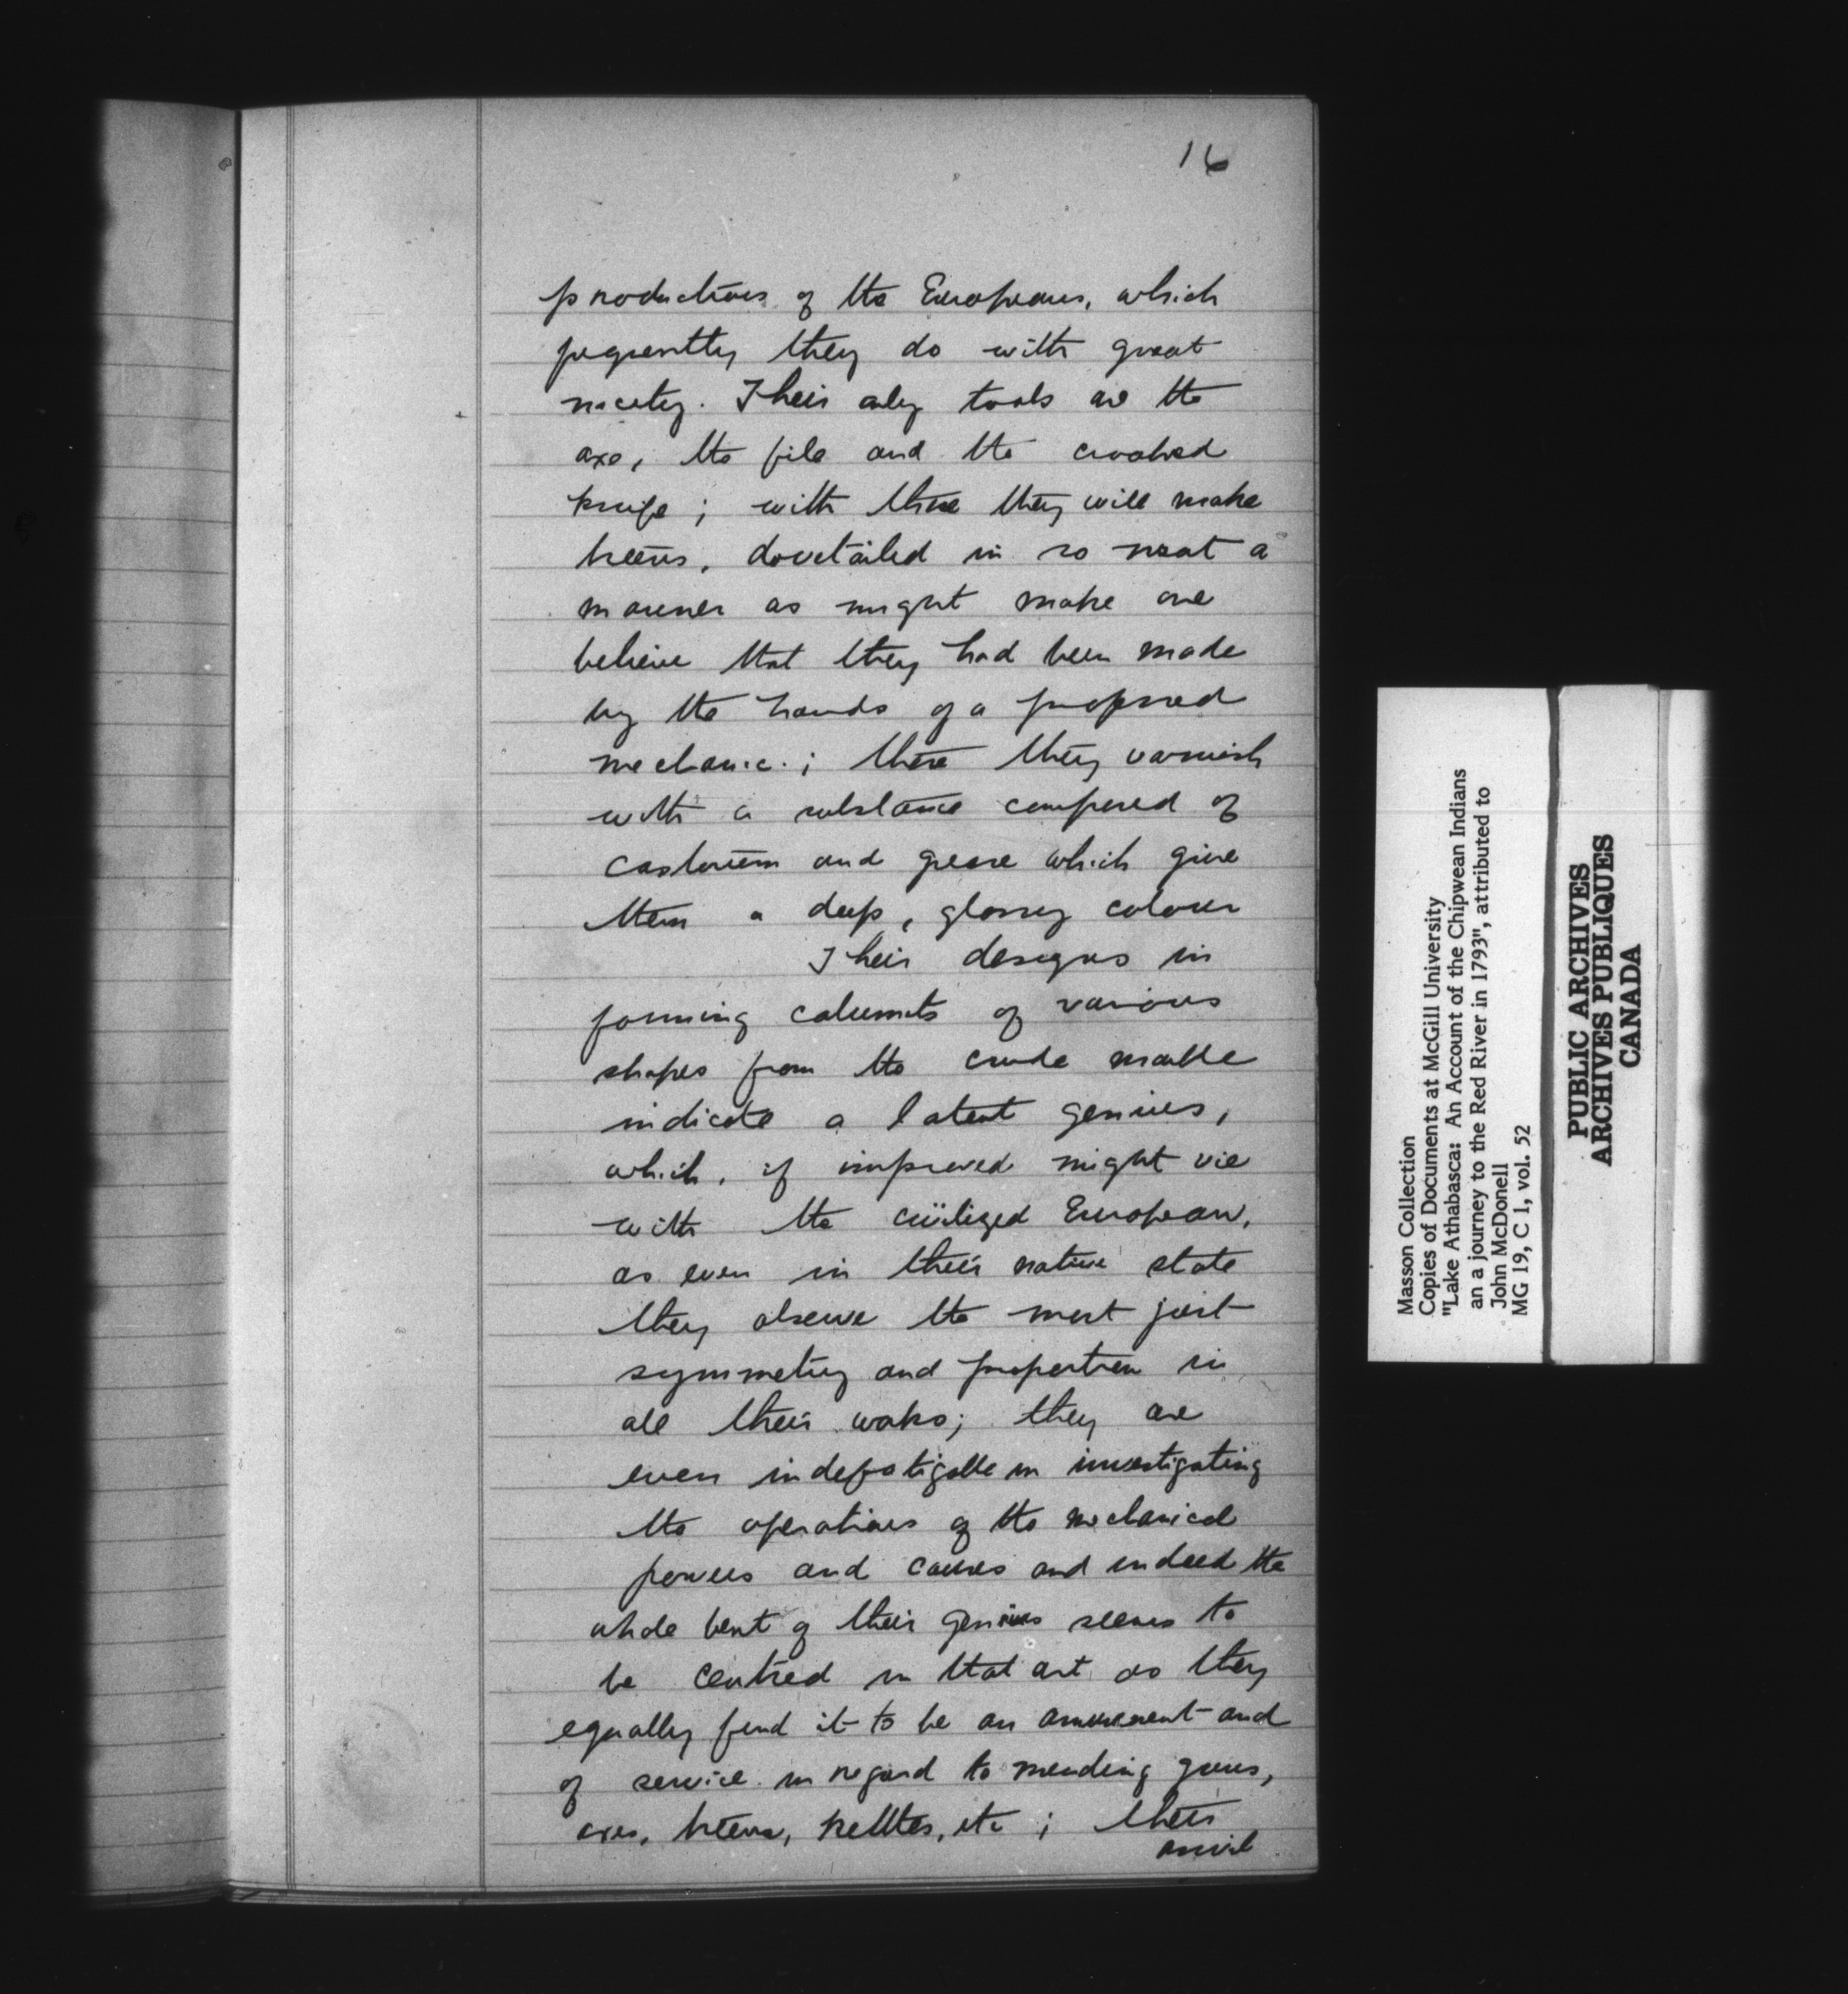 16
productions of the Europeans, which
frequently they do with great
nicety. Their only tools are the
axe, the file and the crooked
knife; with these they will make
dovetailed in so neat a
manner as might make one
believe that they had been made
by the hands of a professed
mechanic; these they varnish
with a substance composed of
castoreum and grease which give
them a deep, glossy colour
Their designs in
forming calumets of various
shapes from the crude marble
indicate a latent genius,
which, if improved might vie
with the civilized European,
as even in their native state
they observe the most just
symmetry and proportion in
all their works; they are
even indefatigable in investigating
the operations of the mechanical
powers and causes and indeed the
whole bent of their genius seems to
be centred in that art as they
equally find it to be an amusement and
of service in regard to mending guns,
axes, kettles, etc; their
anvil
Masson Collection
Copies of Documents at McGill University
"Lake Athabasca: An Account of the Chipwean Indians
an a journey to the Red River in 1793", attributed to
John McDonell
MG 19, C 1, vol. 52
PUBLIC ARCHIVES
ARCHIVES PUBLIQUES
CANADA